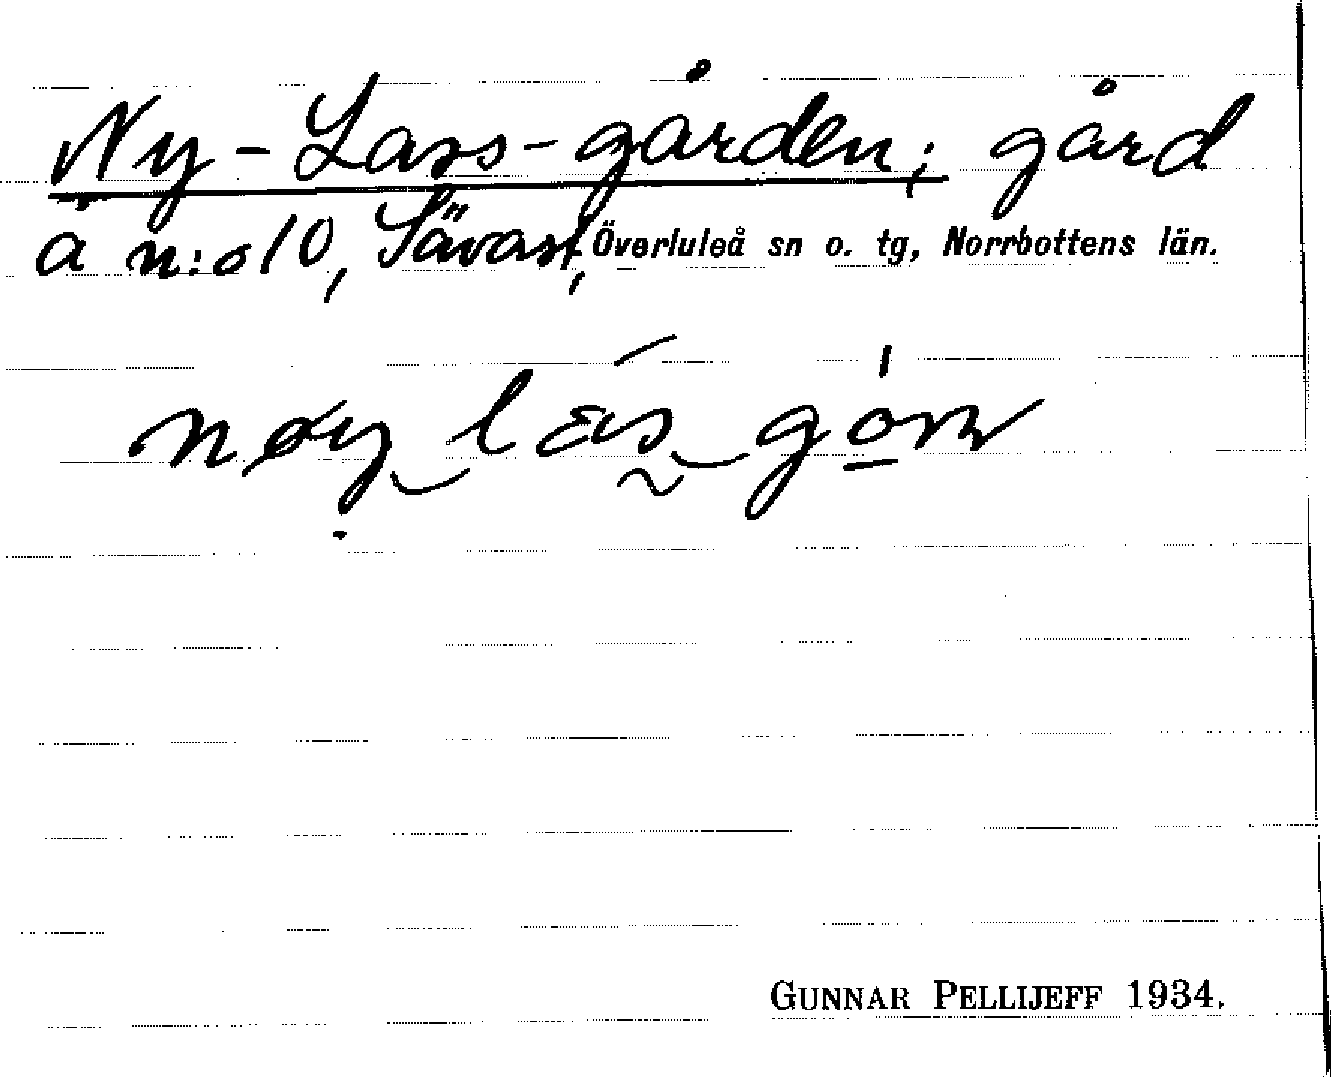 Ny-Lars-gården; gård
å n:o 10, Sävast, Överluleå sn o. tg, Norrbottens län.
GUNNAR PELLIJEFF 1934.